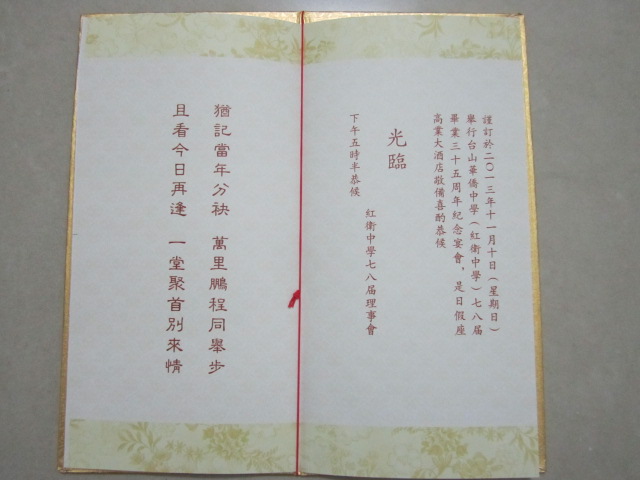 謹訂於二〇一三年十一月十日（星期日）
舉行台山華僑中學（紅衛中學）七八屆
畢業三十五周年紀念宴會，是日假座
高業大酒店敬備喜酌恭候
光臨
紅衛中學七八屆理事會
下午五時半恭候
猶記當年分袂 萬里鵬程同舉步
且看今日再逢 一堂聚首別來情